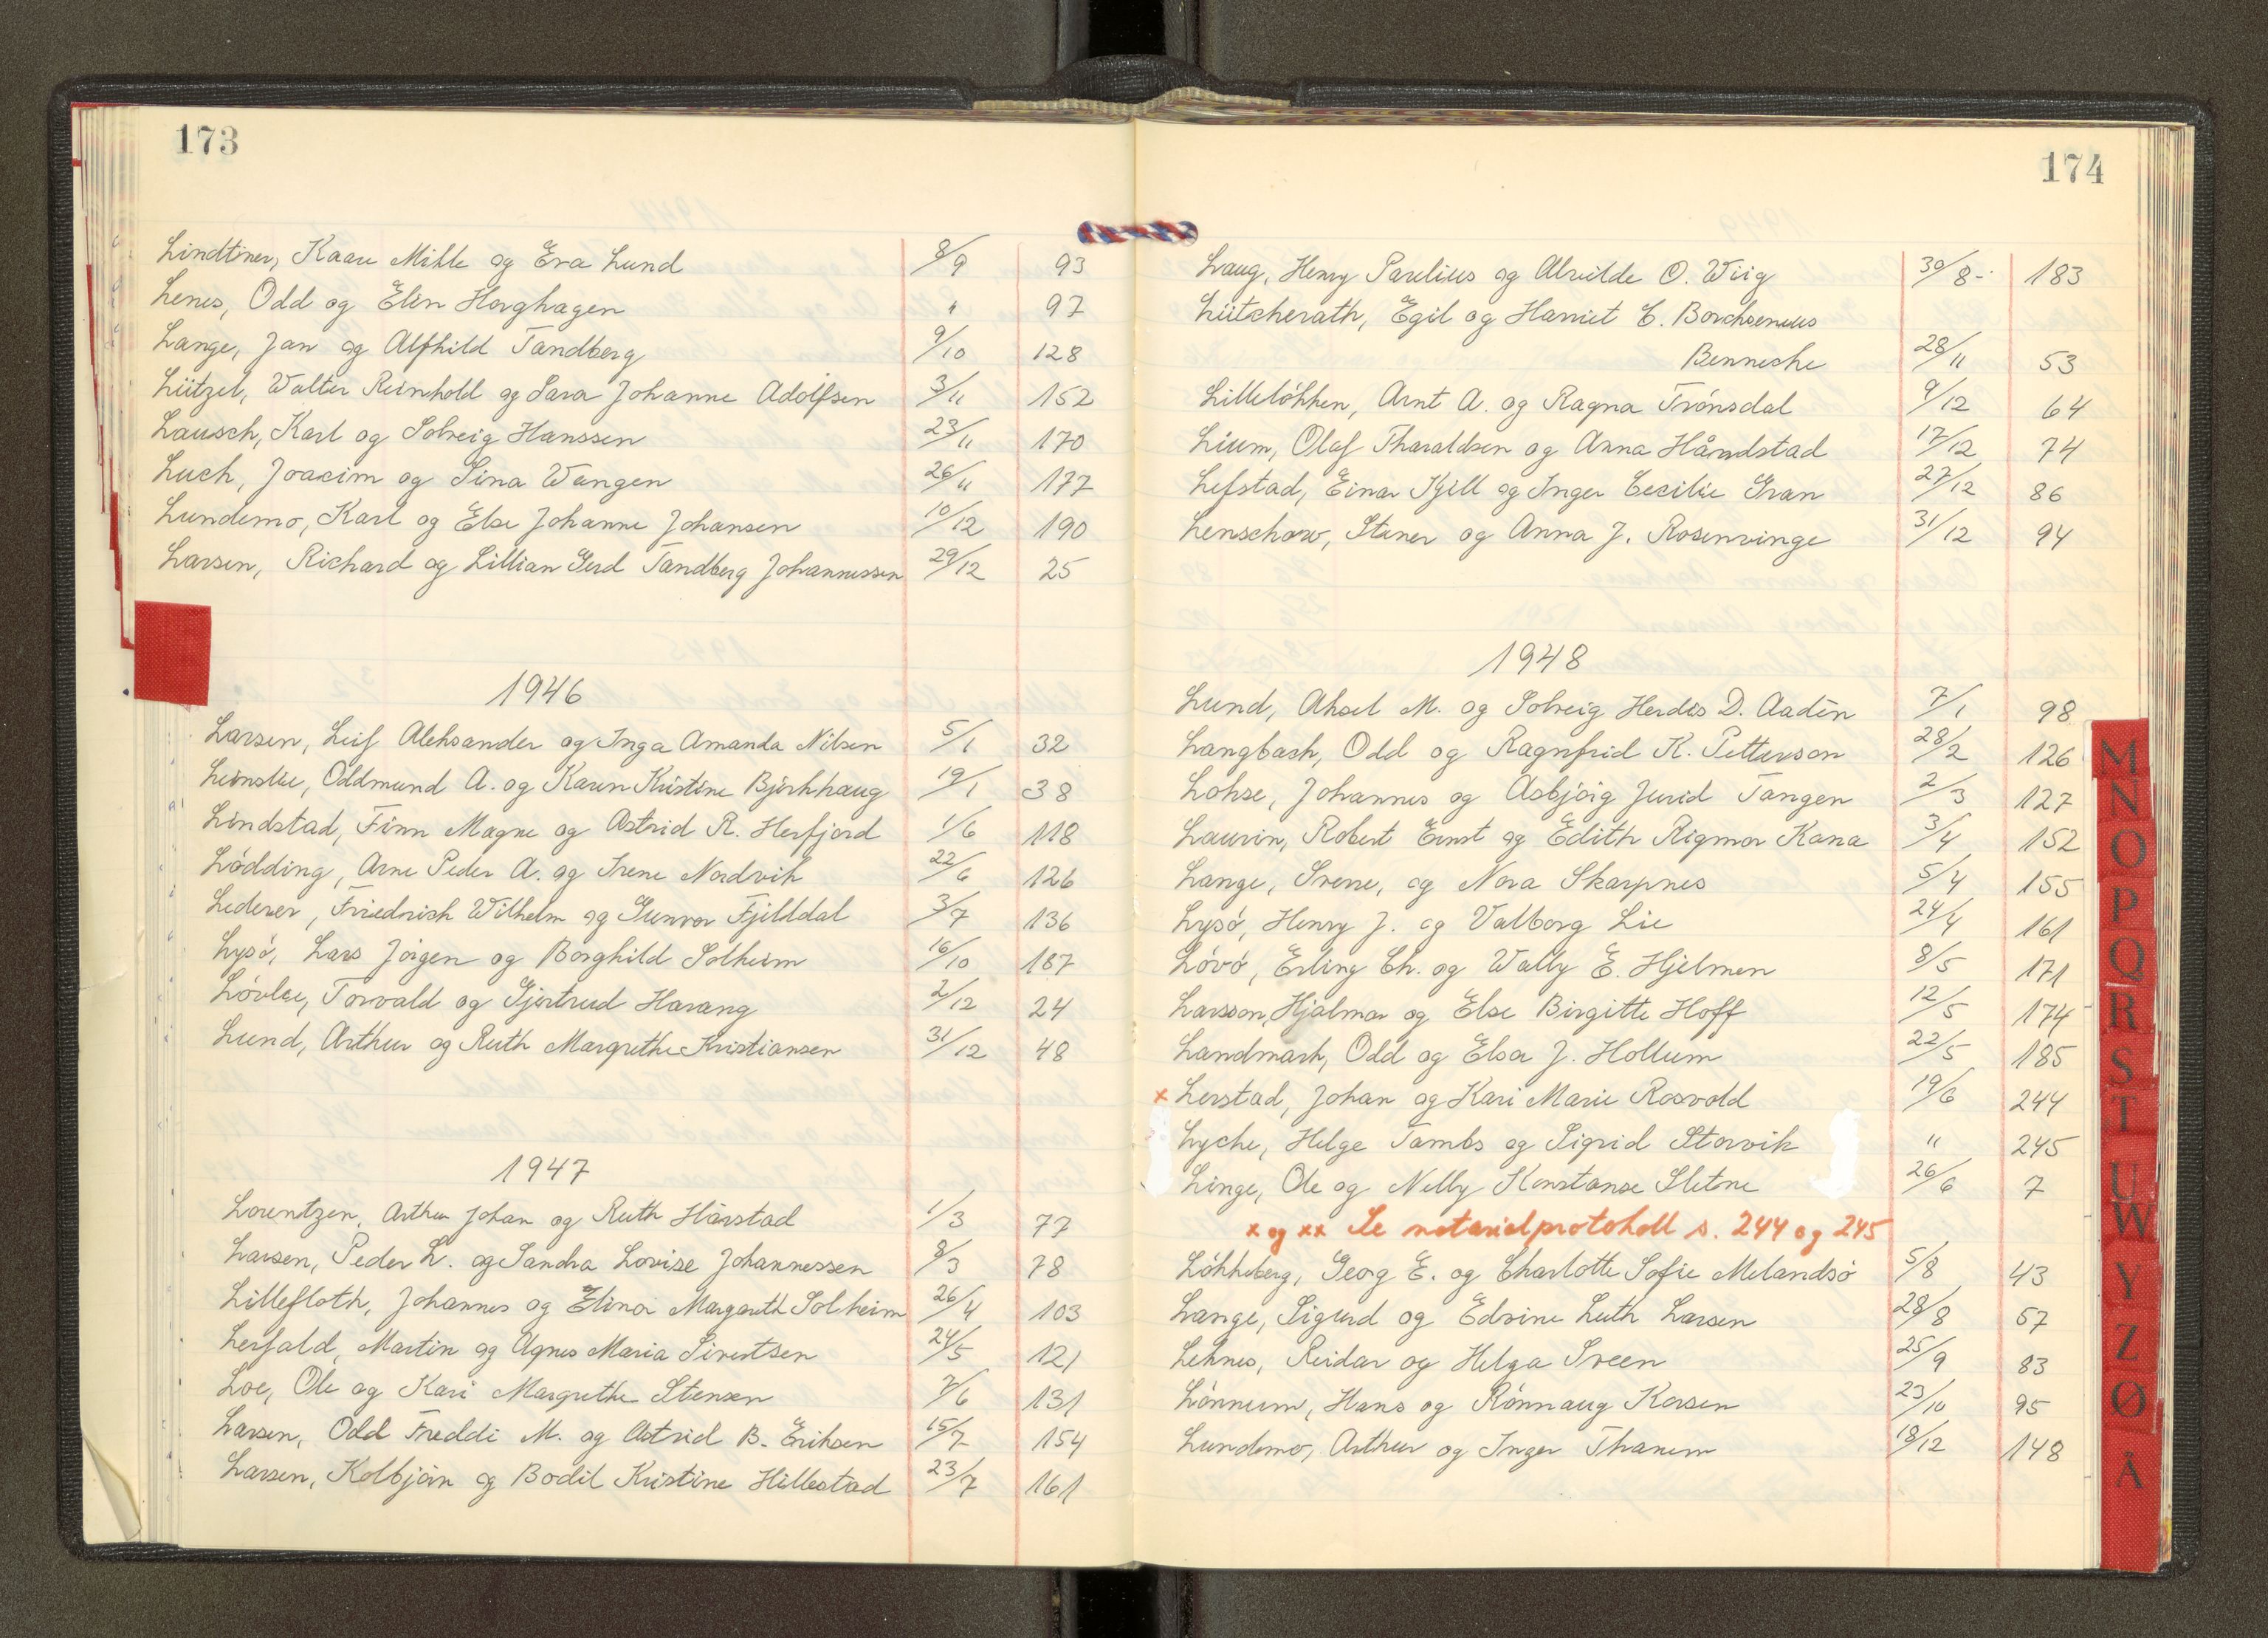 173
Lindtner, Kaare Mikle og Eva Lund 8/9 93
Lenes, Odd og Elin Horghagen " 97
Lange, Jan og Alfhild Tandberg 9/10 128
Lützel, Walter Reinhold og Sara Johanne Adolfsen 3/11 152
Lausch, Karl og Solveig Hanssen 23/11 170
Luck, Joacim og Sina Wangen 26/11 177
Lundemo, Karl og Else Johanne Johansen 10/12 190
Larsen, Richard og Lillian Gerd Tandberg Johannessen 29/12 25
1946
Larsen, Leif Aleksander og Inga Amanda Nilsen 5/1 32
Leinslie, Oddmund A. og Karen Kristine Björkhaug 19/1 38
Lindstad, Finn Magne og Astrid R. Herfjord 1/6 118
Lödding, Arne Peder A. og Irene Nordvik 22/6 126
Lederer, Friedrich Wilhelm og Gunvor Fjelldal 3/7 136
Lysö, Lars Jörgen og Borghild Solheim 16/10 187
Lövlie, Torvald og Gjertrud Harang 2/12 24
Lund, Arthur og Ruth Margrethe Kristiansen 31/12 48
1947
Lorentzen, Arthur Johan og Ruth Hårstad 1/3 77
Larsen, Peder L. og Sandra Lovise Johannessen 8/3 78
Lillefloth, Johannes og Elinor Margareth Solheim 26/4 103
Lerfald, Martin og Agnes Maria Sivertsen 24/5 121
Loe, Ole og Kari Margrethe Stensen 7/6 131
Larsen, Odd Freddi M. og Astrid B. Eriksen 15/7 154
Larsen, Kolbjörn og Bodil Kristine Hillestad 23/7 161
174
Laug, Henry Paulius og Alvilde O. Wiig 30/8 183
Lütcherath, Egil og Harriet C. Borchsenius
Benneche 28/11 53
Lillelökken, Arnt A. og Ragna Trönsdal 9/12 64
Lium, Olaf Tharaldsen og Anna Håndstad 17/12 74
Lefstad, Einar Kjell og Inger Cecilie Gran 27/12 86
Lenschow, Stener og Anna J. Rosenvinge 31/12 94
1948
Lund, Aksel M. og Solveig Herdis D. Aadén 7/1 98
Langbakk, Odd og Ragnfrid K. Petterson 28/2 126
Lohse, Johannes og Asbjörg Jurid Tangen 2/3 127
Laurin, Robert Ernst og Edith Rigmor Kana 3/4 152
Lange, Svene, og Nora Skarpnes 5/4 155
Lysö, Henry J. og Valborg Lie 24/4 161
Lövö, Erling Ch. og Wally E. Hjelmen 8/5 171
Larsson, Hjalmar og Else Birgitte Hoff 12/5 174
Landmark, Odd og Elsa J. Hollum 22/5 185
x Lerstad, Johan og Kari Marie Rosvold 19/6 244
Lyche, Helge Tambs og Sigrid Storvik " 245
Linge, Ole og Nelly Konstanse Sletne 26/6 7
x og xx Se notarialprotokoll s. 244 og 245
Lökkeberg, Georg E. og Charlotte Sofie Melandsö 5/8 43
Lange, Sigurd og Edvine Luth Larsen 28/8 57
Leknes, Reidar og Helga Sveen 25/9 83
Lönnum, Hans og Rönnaug Korsen 23/10 95
Lundemo, Arthur og Inger Thanem 18/12 148
M
N
O
P
Q
R
S
T
U
W
Y
Z
Ø
Å